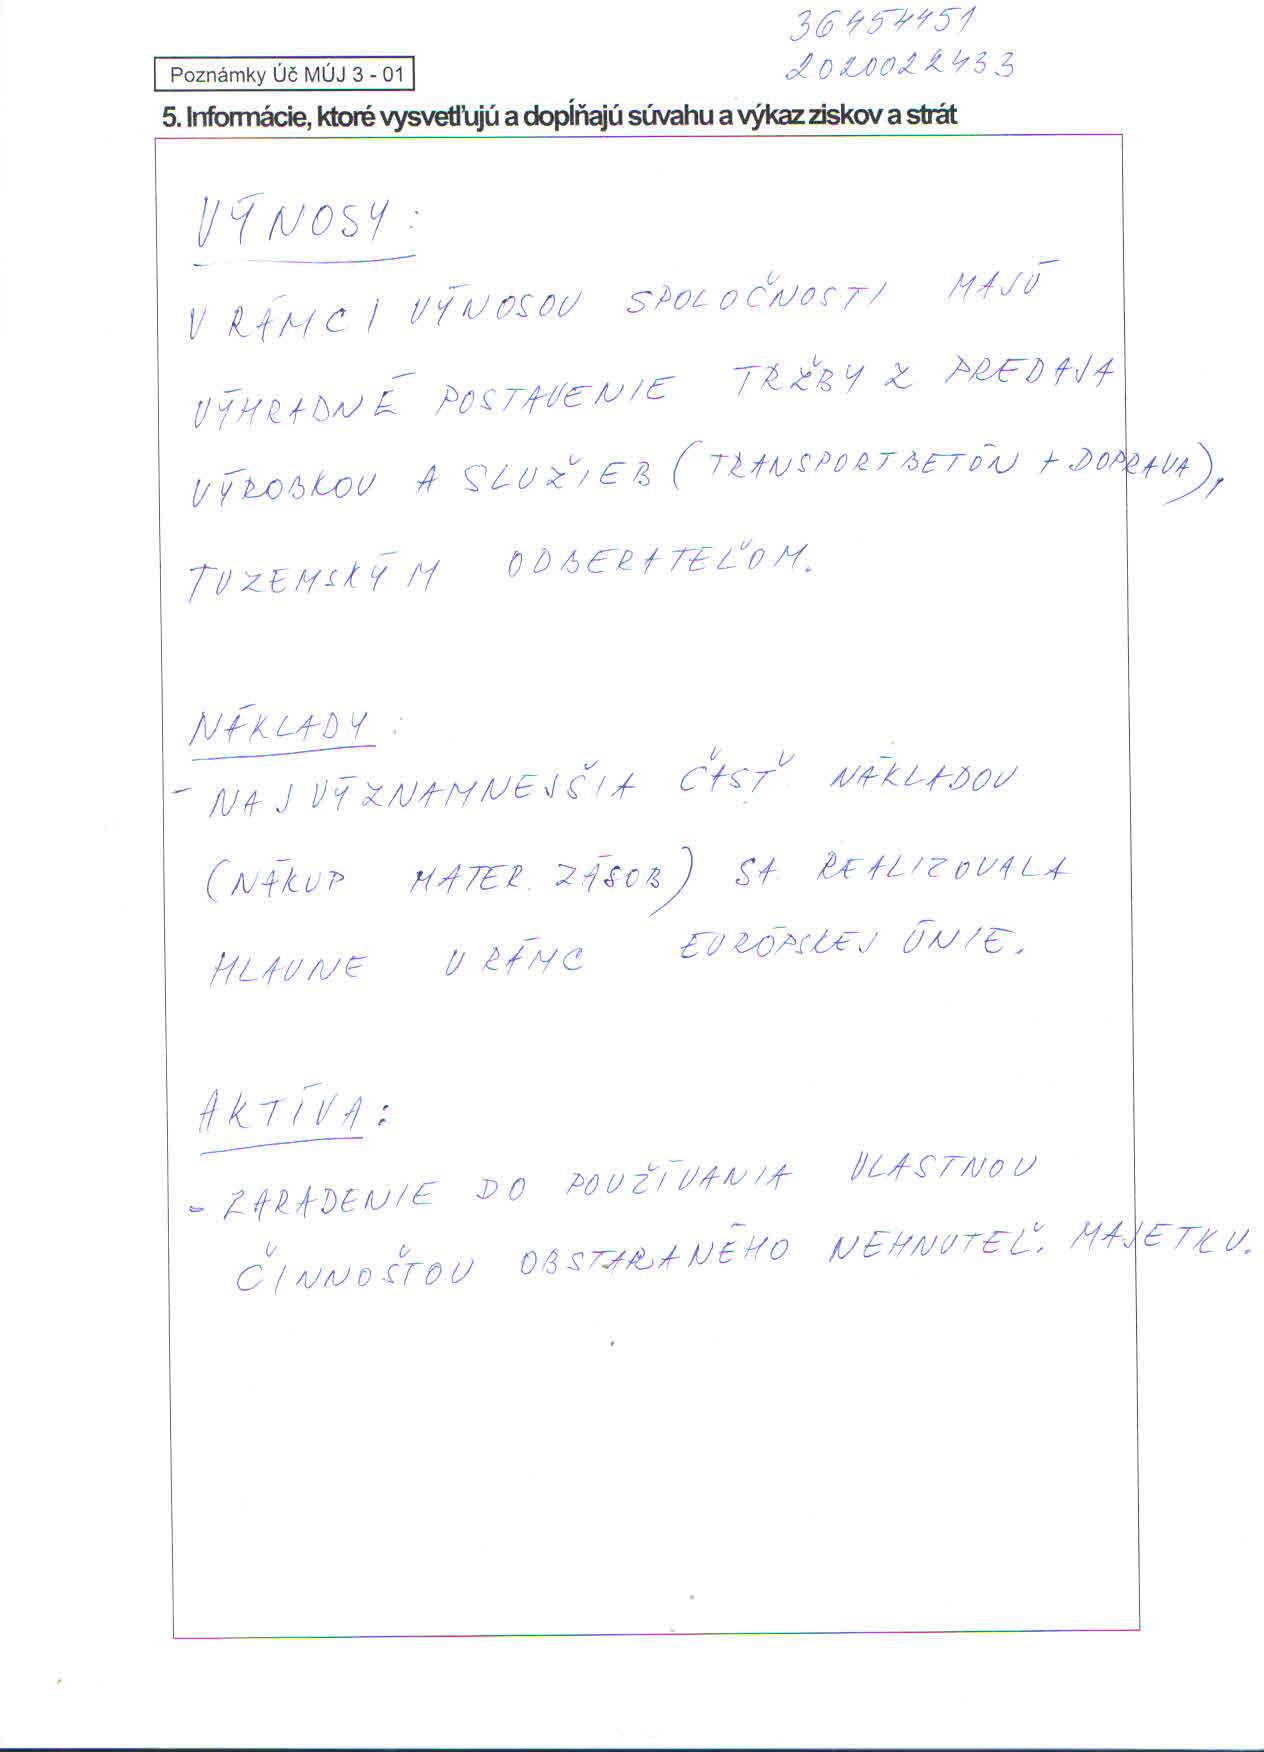 36454451
2020022433
Poznámky Úč MÚJ 3 - 01
5. Informácie, ktoré vysvetľujú a dopĺňajú súvahu a výkaz ziskov a strát
VÝNOSY:
V RÁMCI VÝNOSOV SPOLOČNOSTI MAJÚ
VÝHRADNÉ POSTAVENIE TRŽBY Z PREDAJA
VÝROBKOV A SLUŽIEB (TRANSPORTBETÓN + DOPRAVA),
TUZEMSKÝM ODBERATEĽOM.
NÁKLADY:
- NAJVÝZNAMNEJŠIA ČASŤ NÁKLADOV
(NÁKUP MATER. ZÁSOB) SA REALIZOVALA
HLAVNE V RÁMC EURÓPSKEJ ÚNIE.
AKTÍVA:
- ZARADENIE DO POUŽÍVANIA VLASTNOU
ČINNOSŤOU OBSTARANÉHO NEHNUTEĽ. MAJETKU.